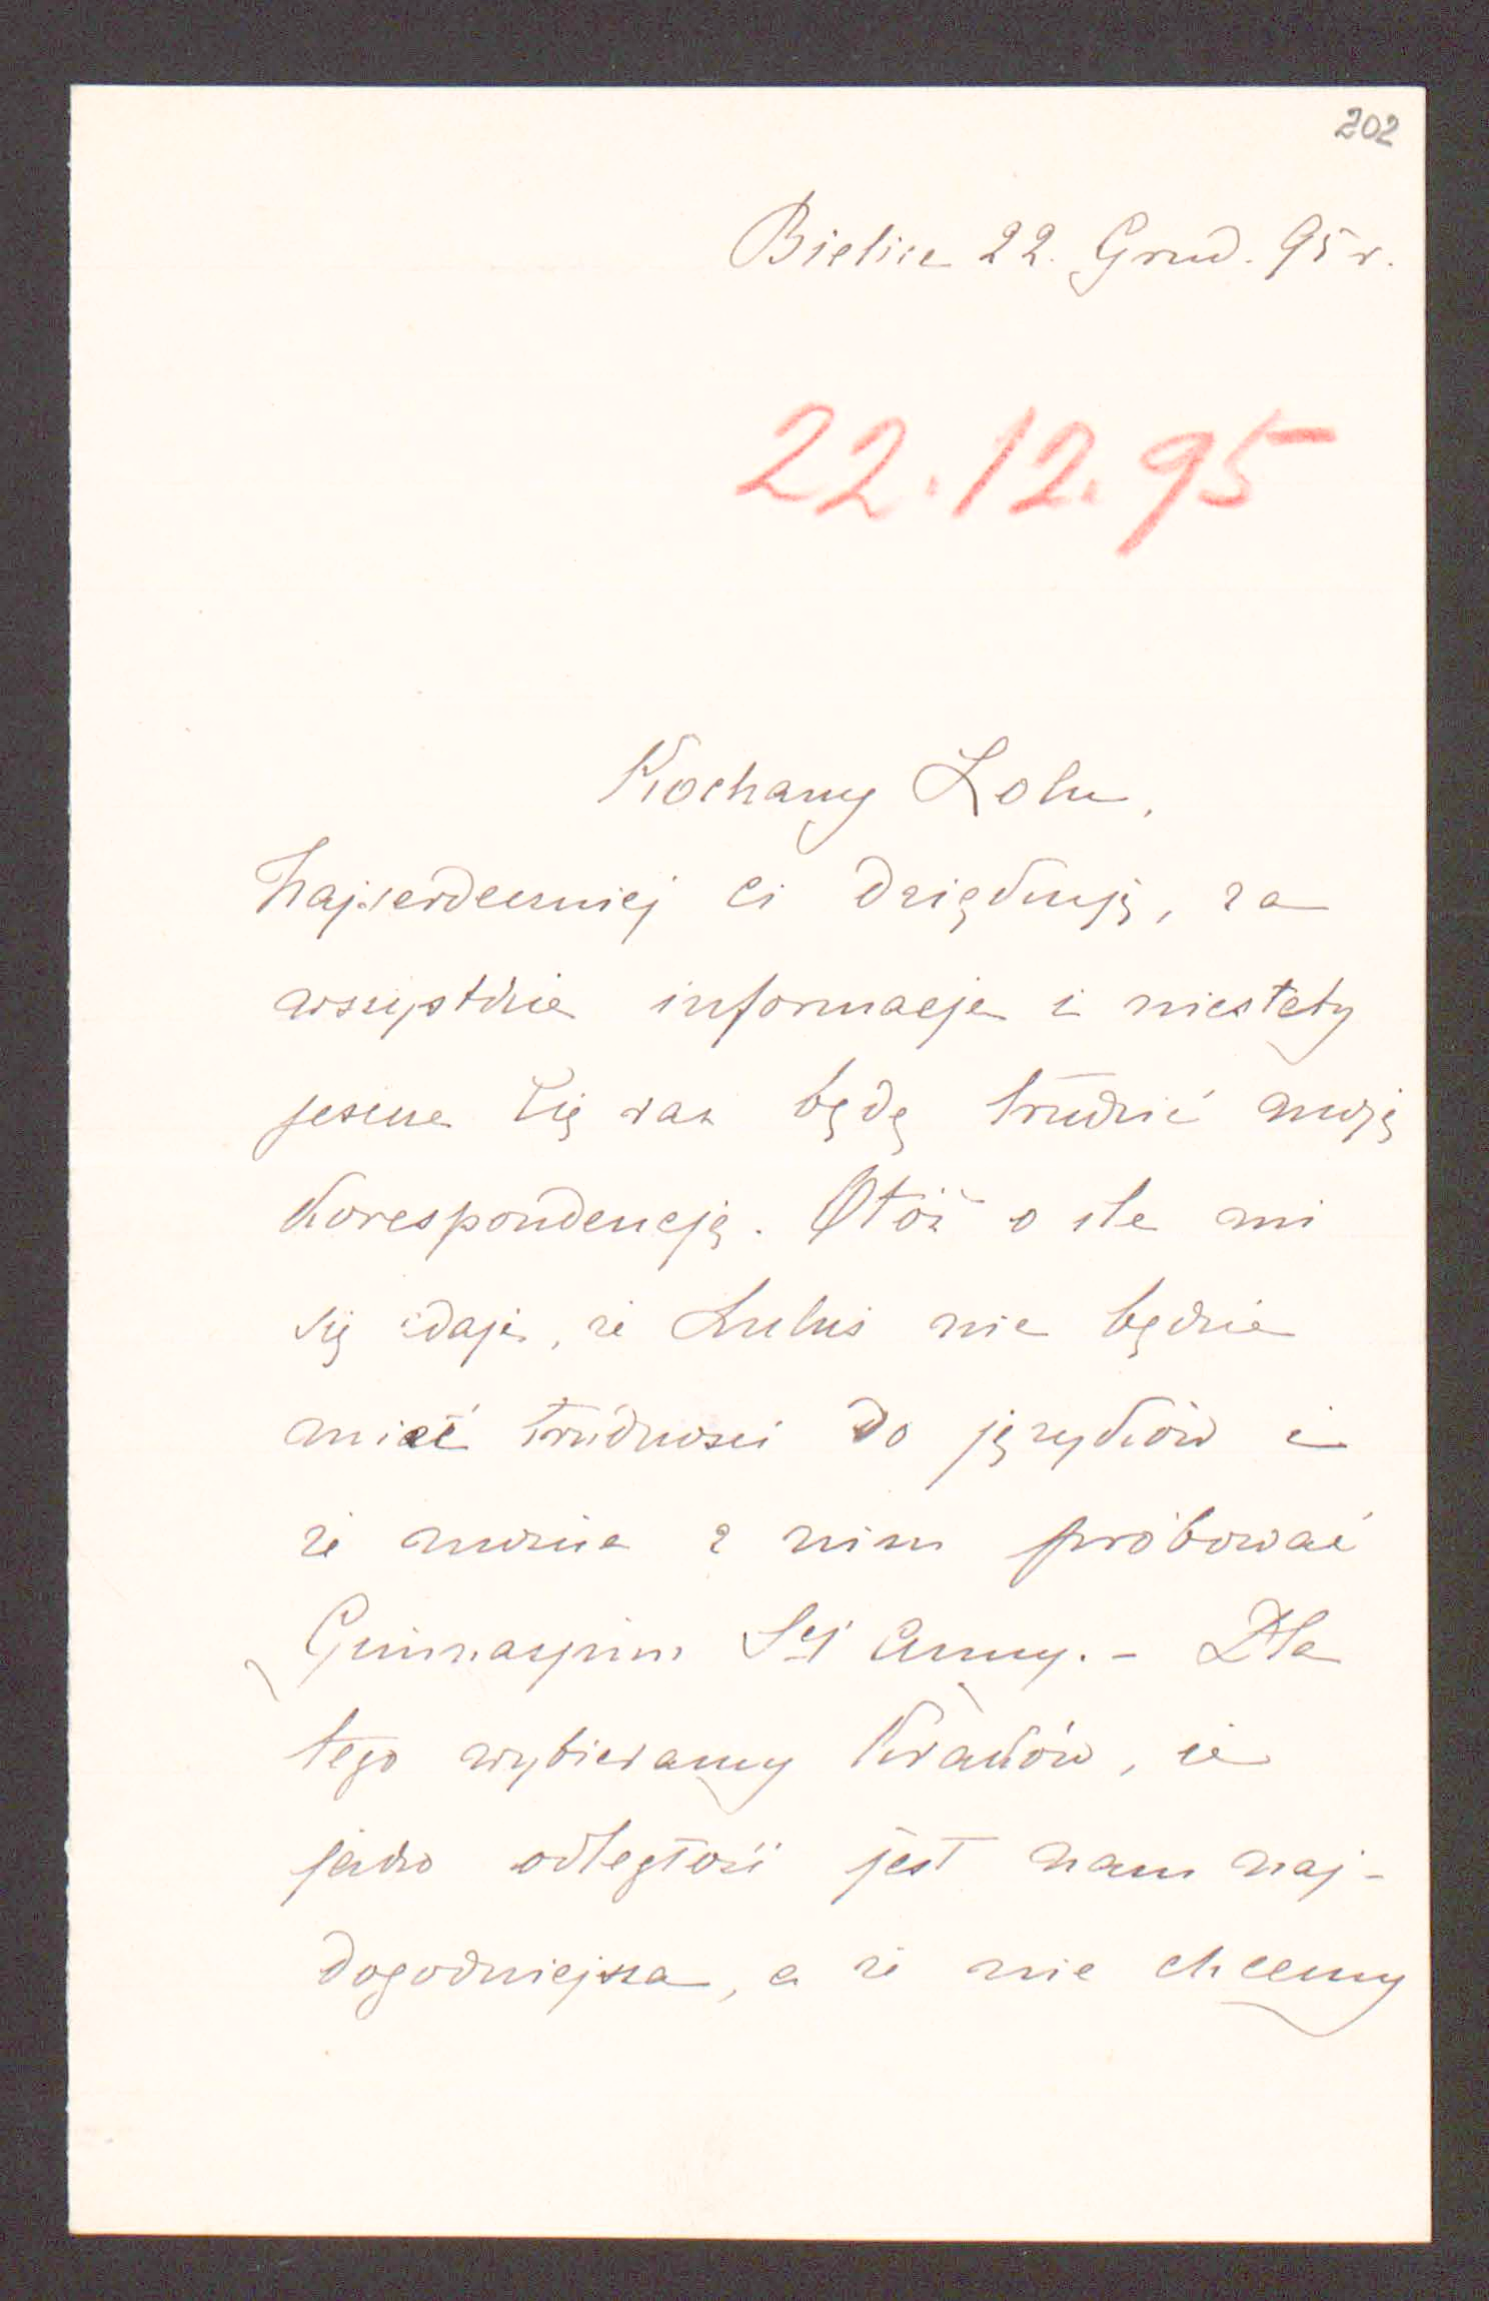 202
Bielice 22. Grud. 95 r.
22.12.95
Kochany Lolu,
Najserdeczniej Ci dziękuję, za
wszystkie informacje i niestety
jeszcze Cię raz będę trudzić moją
korespondencją. Otóż o ile mi
się zdaje, że Luluś nie będzie
mieć trudności do języków i
że można z nim próbować
Gimnazyum Sej Anny. - Dla
tego wybieramy Kraków, że
jako odległość jest nam naj-
dogodniejsza, a że nie chcemy